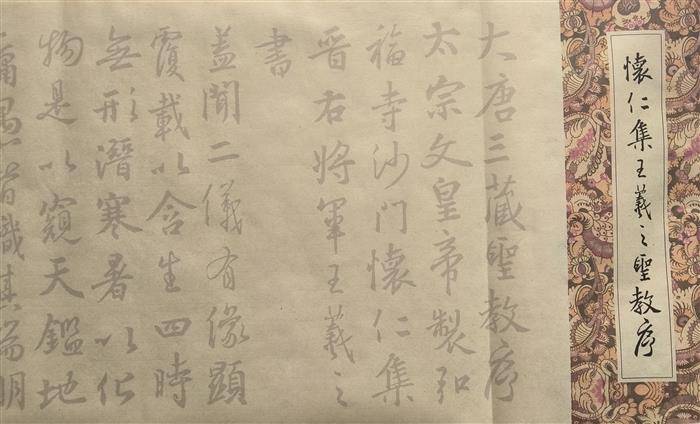 懷仁集王羲之聖教序
大唐三藏聖教序
太宗文皇帝製弘
福寺沙門懷仁集
晉右將軍王羲之
書
蓋聞二儀有像顯
覆載以含生四時
無形潛寒暑以化
物是以窺天鑑地
庸愚皆識其端明